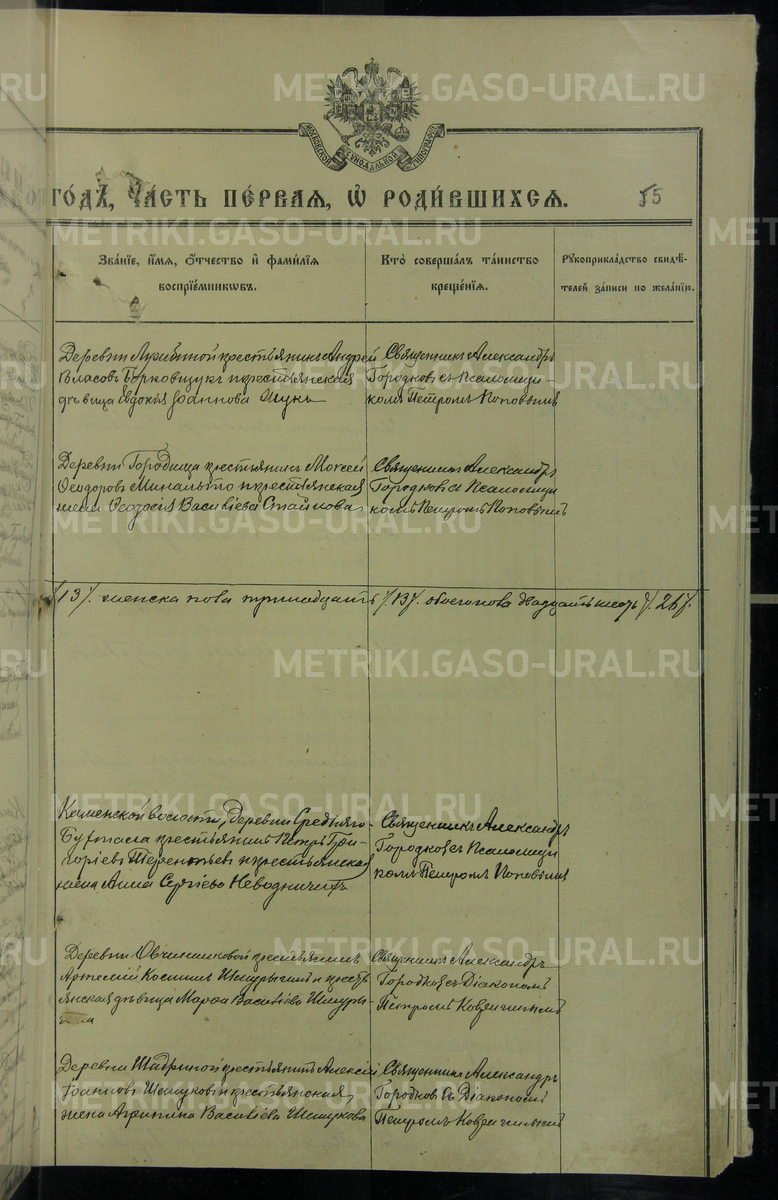 METRIKI.GASO-URAL.RU
МОСКОВСКОЙ СѴНОДАЛЬНОЙ ТИПОГРАФІИ
ГО́ДѢ, ЧА́СТЬ ПЕ́РВАЯ, Ѡ РОДИ́ВШИХСЯ.
55
ЗВА́НІЕ, И́МЯ, О́ТЧЕСТВО И ФАМИ́ЛІЯ
ВОСПРІЕ́МНИКѠВЪ.
КТО̀ СОВЕРША́ЛЪ ТА́ИНСТВО
КРЕЩЕ́НІЯ.
РУКОПРИКЛА́ДСТВО СВИДѢ́-
ТЕЛЕЙ ЗА́ПИСИ ПО ЖЕЛА́НІЮ.
Деревни крестьянинъ Андрей
Власовъ и крестьянская
дѣвица Евдокія Іоаннова
Священникъ Александръ
Городковъ съ Псаломщи-
комъ Петромъ Поповымъ
Деревни Городища крестьянинъ Моисей
Ѳеодоровъ и крестьянская
жена Ѳеодосія Васильева
Священникъ Александръ
Городковъ съ Псаломщи
комъ Петромъ Поповымъ
/13/. женска пола тринадцать /13/. обоего пола двадцать шесть /26/.
Каменской волости, Деревни Средняго
крестьянинъ Петръ Гри-
горіевъ Терентьевъ и крестьянская
жена Анна Сергіева
Священникъ Александръ
Городковъ съ Псаломщи
комъ Петромъ Поповымъ
Деревни Овчинниковой крестьянинъ
Артемій Косминъ и кресть
янская дѣвица Марѳа Васильева
Священникъ Александръ
Городковъ съ Діакономъ
Петромъ
Деревни Шадриной крестьянинъ Алексій
Іоанновъ и крестьянская
жена Агрипина Васильева Шешукова
Священникъ Александръ
Городковъ съ Діакономъ
Петромъ